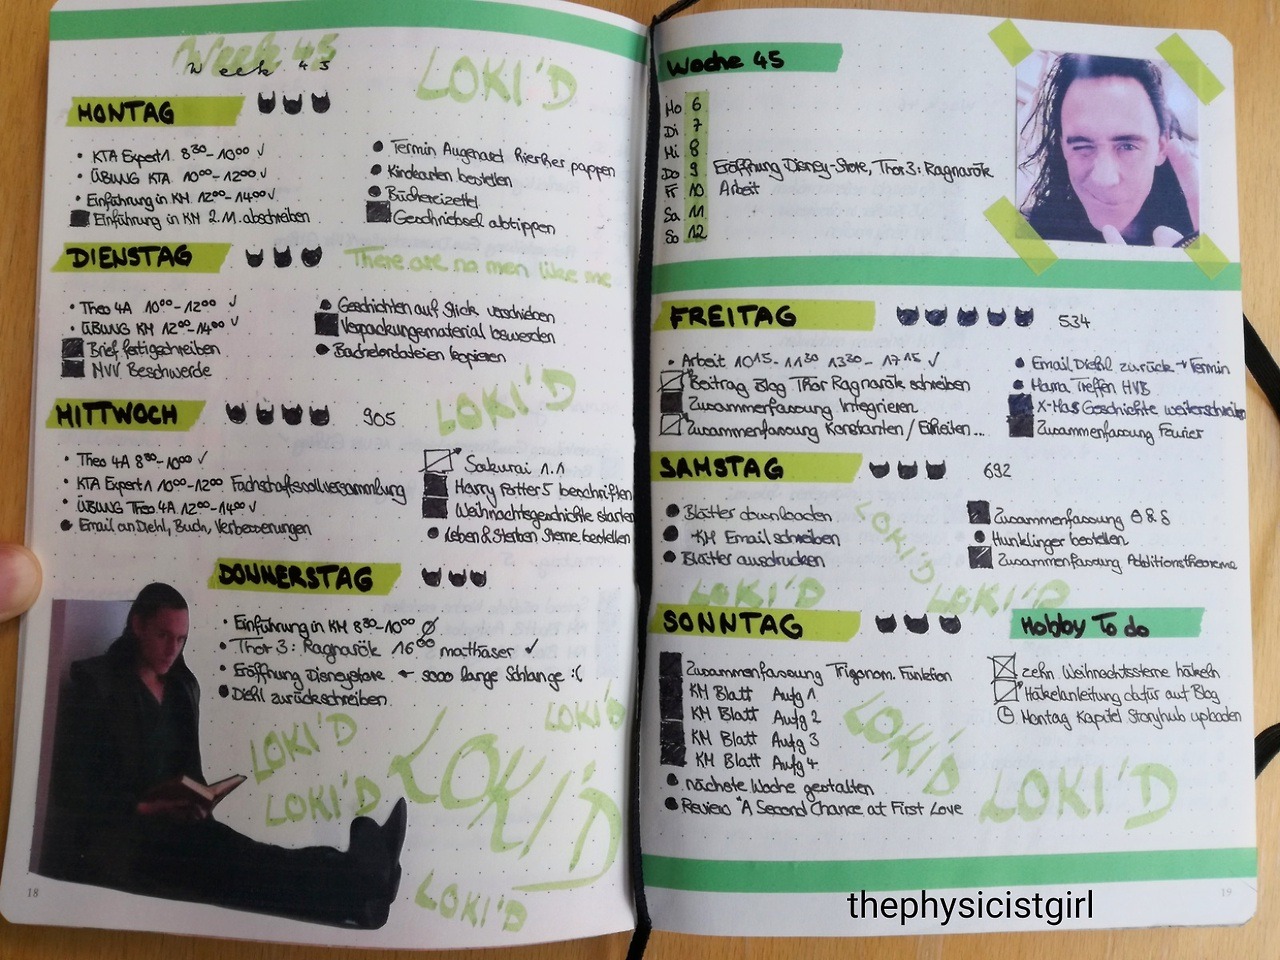 Week 45
Week 45
LOKI'D
MONTAG
• KTA Expert1 8³⁰-10⁰⁰ ✓
• ÜBUNG KTA 10⁰⁰-12⁰⁰ ✓
• Einführung in KM 12⁰⁰-14⁰⁰ ✓
Einführung in KM 2.M. abschreiben
Termin Augenarzt hierher pappen
Kinokarten bestellen
Büchereizettel
Geschriebsel abtippen
DIENSTAG
There are no men like me
• Theo 4A 10⁰⁰-12⁰⁰ ✓
• ÜBUNG KM 12⁰⁰-14⁰⁰ ✓
Brief fertigschreiben
MVV Beschwerde
Geschichten auf Stick verschieben
Verpackungsmaterial besorgen
Bachelordateien kopieren
LOKI'D
MITTWOCH
905
• Theo 4A 8³⁰-10⁰⁰ ✓
• KTA Expert1 10⁰⁰-12⁰⁰ Fachschaftsvollversammlung
• ÜBUNG Theo 4A 12⁰⁰-14⁰⁰ ✓
Email an Diehl, Buch, Verbesserungen
Sakurai 1.1
Harry Potter 5 beschriften
Weihnachtsgeschichte starten
Leben & Sterben Sterne bestellen
DONNERSTAG
• Einführung in KM 8³⁰-10⁰⁰
• Thor 3: Ragnarök 16⁰⁰ mathäser ✓
• Eröffnung Disneystore ← sooo lange Schlange :(
Diehl zurückschreiben
LOKI'D
LOKI'D
LOKI'D
LOKI'D
LOKI'D
18
Woche 45
Mo 6
Di 7
Mi 8
Do 9 Eröffnung Disney-Store, Thor 3: Ragnarök
Fr 10 Arbeit
Sa 11
So 12
FREITAG
534
• Arbeit 10¹⁵-11³⁰ 13³⁰-17¹⁵ ✓
Beitrag Blog Thor Ragnarök schreiben
Zusammenfassung Integrieren
Zusammenfassung Konstanten / Einheiten...
Email Diehl zurück → Termin
Mama Treffen HVB
X-Mas Geschichte weiterschreiben
Zusammenfassung Fourier
SAMSTAG
692
Blätter downloaden
KM Email schreiben
Blätter ausdrucken
LOKI'D
Zusammenfassung Θ & δ
Hunklinger bestellen
Zusammenfassung Additionstheoreme
LOKI'D
LOKI'D
SONNTAG
Zusammenfassung Trigonom. Funktion
KM Blatt Aufg 1
KM Blatt Aufg 2
KM Blatt Aufg 3
KM Blatt Aufg 4
nächste Woche gestalten
Review "A Second Chance at First Love
LOKI'D
LOKI'D
Hobby To do
zehn Weihnachtssterne häkeln
Häkelanleitung dafür auf Blog
Montag Kapitel Storyhub uploaden
19
thephysicistgirl